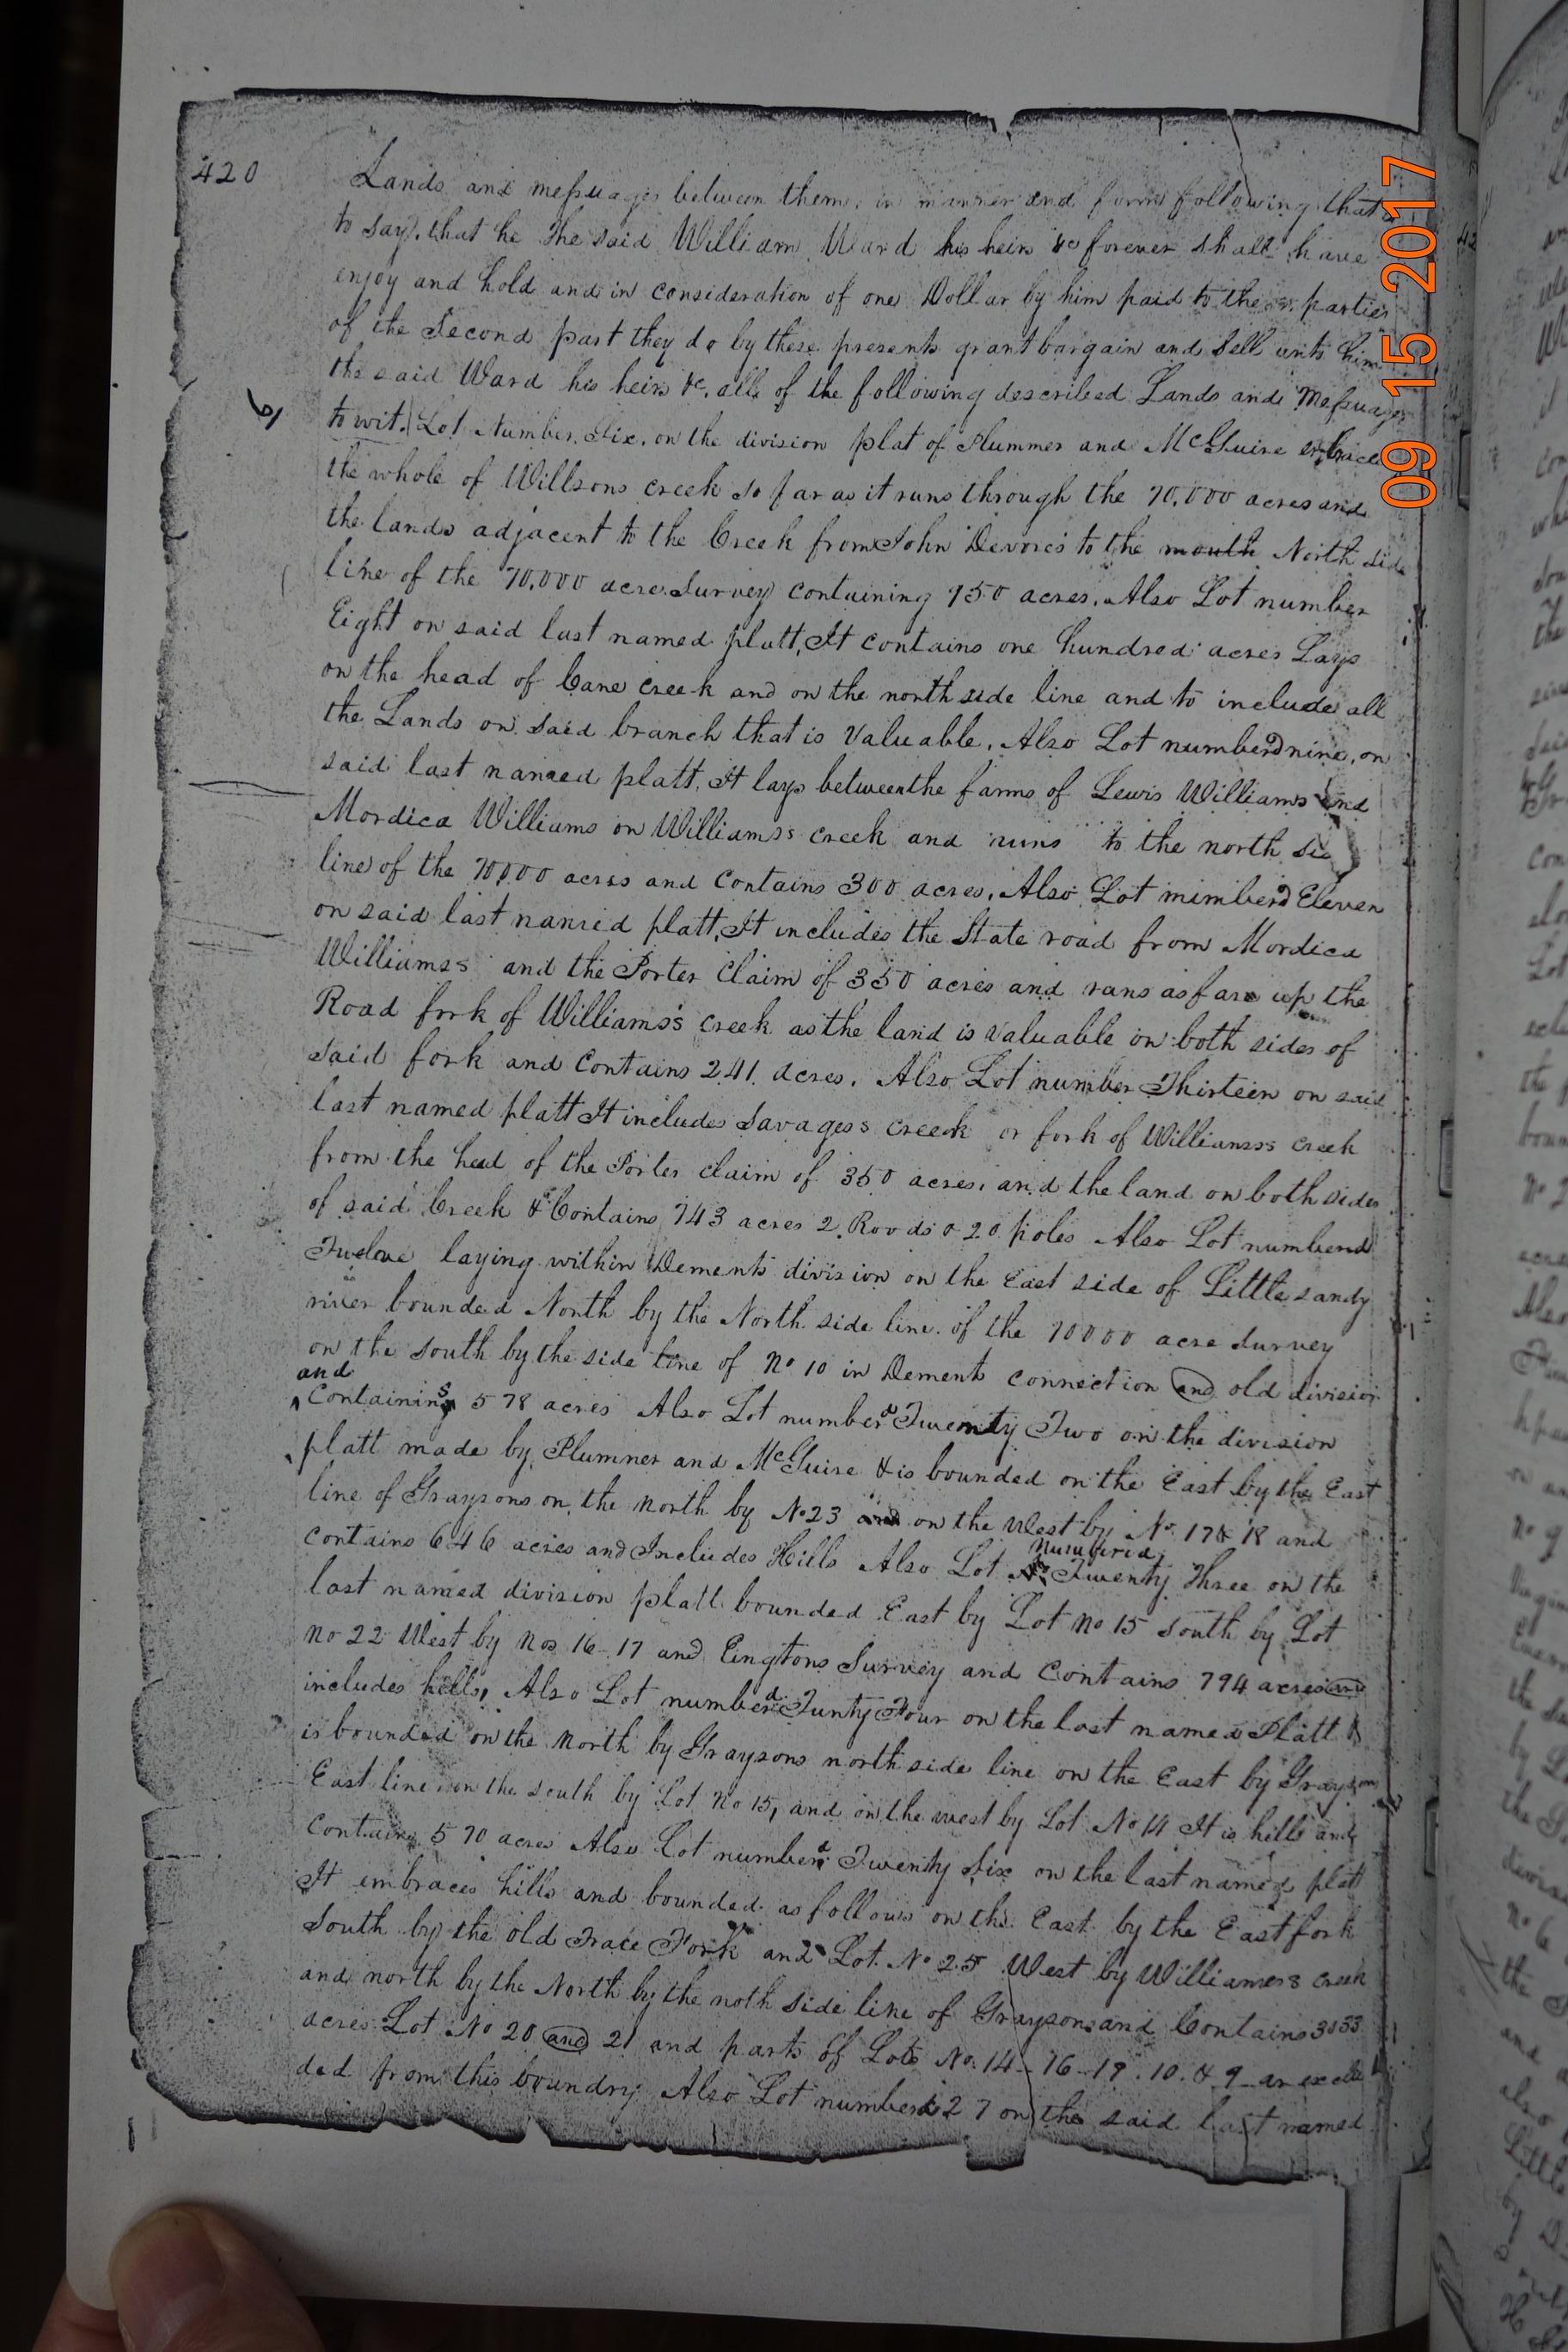 420
Lands and messuages between them, in manner and form following that is
to say, that he the said William Ward his heirs &c forever shall have
enjoy and hold and in consideration of one Dollar by him paid to the parties
of the Second part they do by these presents grant bargain and Sell unto him
the said Ward his heirs &c. all of the following described Lands and Messuages
to wit. Lot Number. Six. on the division plat of Plummer and McGuire embraces
the whole of Willsons creek so far as it runs through the 70,000 acres and
the lands adjacent to the Creek from John Devores to the mouth North side
line of the 70,000 acre Survey containing 750 acres. Also Lot number
Eight on said last named platt, It contains one hundred acres Lays
on the head of Cane creek and on the north side line and to include all
the Lands on said branch that is Valuable. Also Lot numberd nine, on
said last named platt. It lays between the farms of Lewis Williams and
Mordica Williams on Williamss creek and runs to the north side
line of the 70,000 acres and contains 300 acres. Also Lot numberd Eleven
on said last named platt, It includes the State road from Mordica
Williamss and the Porter Claim of 350 acres and runs as far up the
Road fork of Williams's creek as the land is valuable on both sides of
said fork and Contains 241 acres. Also Lot number Thirteen on said
last named platt It includes Savagess creek or fork of Williamss creek
from the head of the Porter claim of 350 acres. and the land on both sides
of said Creek & Contains 743 acres 2 Roods 0 20 poles Also Lot numberd
Twelve laying within Dements division on the East side of Little sandy
river bounded North by the North side line of the 70000 acre Survey
on the South by the side line of No 10 in Dements connection and old division
and
Contains 578 acres Also Lot numberd Twenty Two on the division
platt made by Plummer and McGuire & is bounded on the East by the East
line of Graysons on the North by No 23 and on the West by No. 17 & 18 and
contains 646 acres and Includes Hills Also Lot Numberd Twenty Three on the
last named division platt bounded East by Lot No 15 South by Lot
No 22 West by Nos 16-17 and Eingtons Survey and Contains 794 acres and
includes hills, Also Lot numberd Tunty Four on the last named Platt &
is bounded on the North by Graysons north side line on the East by Graysons
East line on the South by Lot No 15, and on the west by Lot No 14 It is hills and
Contains 570 acres Also Lot numberd Twenty Six on the last named platt
It embraces hills and bounded as follows on the East by the East fork
South by the old Trace Fork and Lot No 25 West by Williamss creek
and north by the North by the noth side line of Graysons and Contains 3033
acres Lot No 20 and 21 and parts of Lots No. 14-16-19.10. & 9 - are exclu
ded from this boundry Also Lot numberd 27 on the said last named
09 15 2017